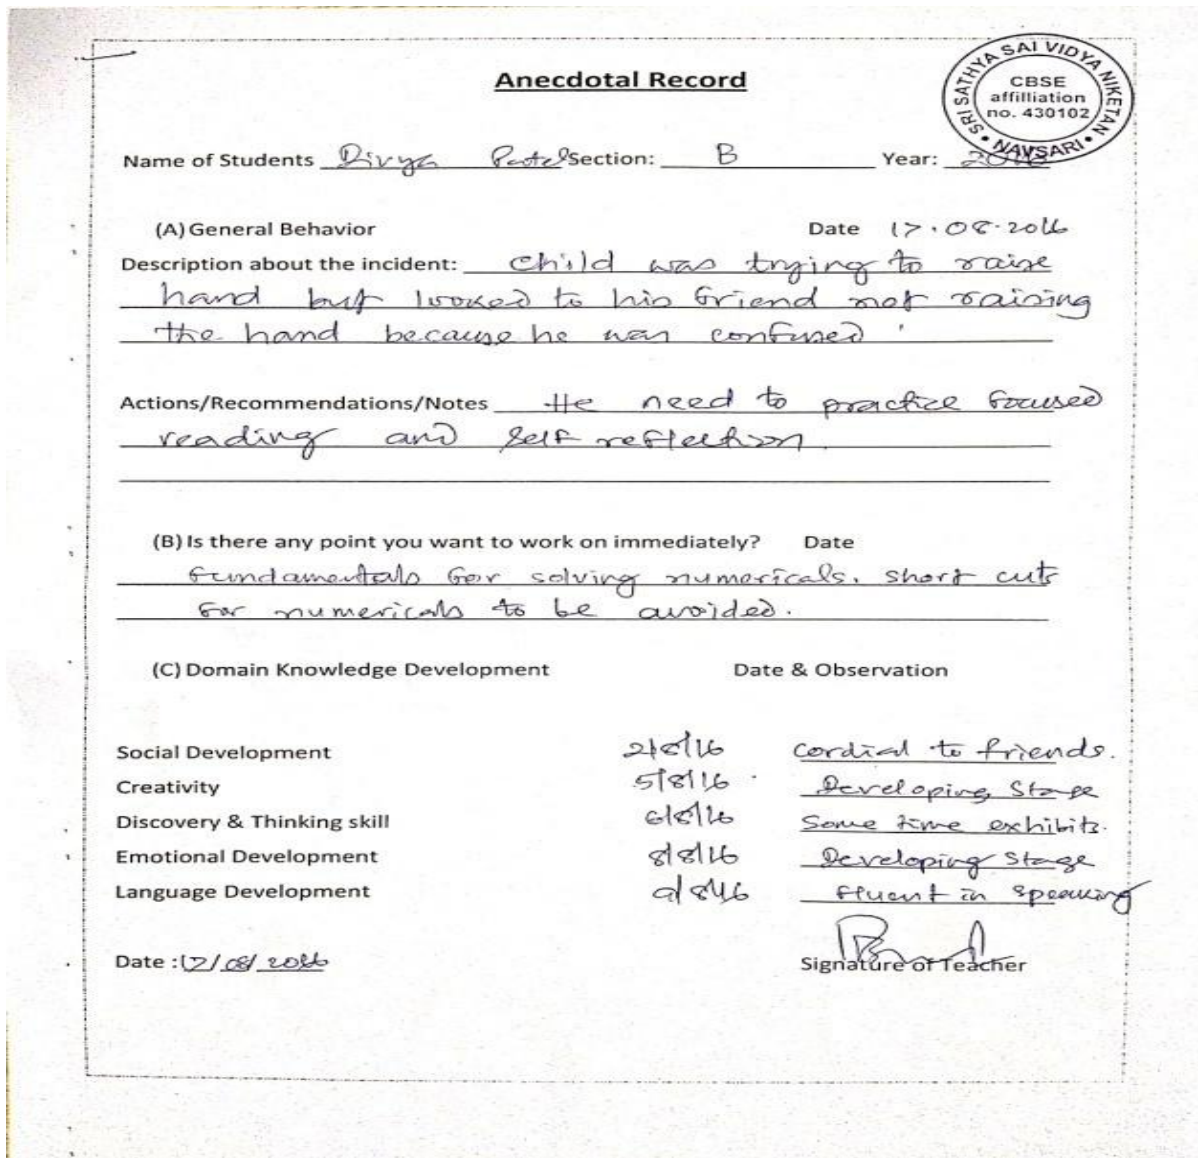 Anecdotal Record
SRI SATHYA SAI VIDYA NIKETAN • NAVSARI •
CBSE
affilliation
no. 430102
Name of Students Divya Patel Section: B Year: 2016
(A) General Behavior Date 17.08.2016
Description about the incident: child was trying to raise
hand but looked to his friend not raising
the hand because he was confused.
Actions/Recommendations/Notes He need to practice focused
reading and self reflection.
(B) Is there any point you want to work on immediately? Date
fundamentals for solving numericals. short cuts
for numericals to be avoided.
(C) Domain Knowledge Development Date & Observation
Social Development 2/8/16 cordial to friends.
Creativity 5/8/16 Developing Stage
Discovery & Thinking skill 6/8/16 Some time exhibits.
Emotional Development 8/8/16 Developing Stage
Language Development 9/8/16 fluent in speaking
Date : 17/08/2016 Signature of Teacher